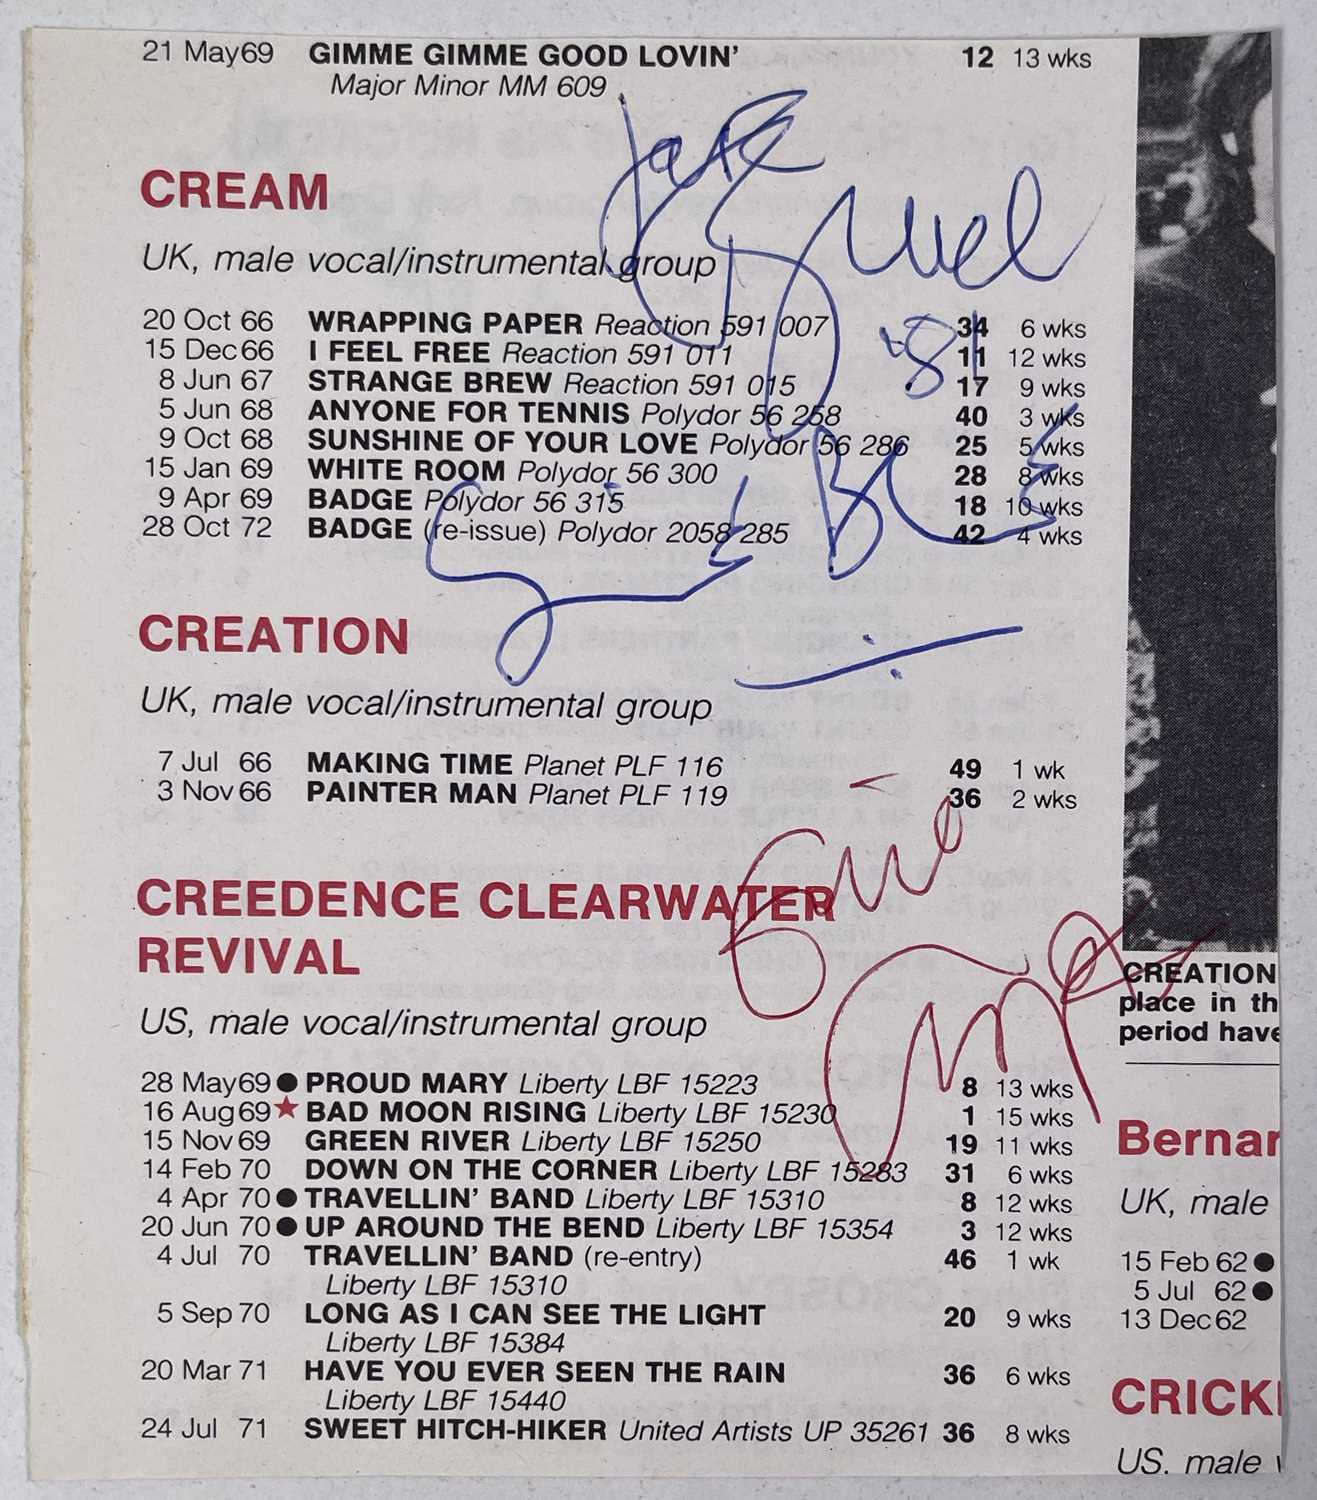 21 May 69 GIMME GIMME GOOD LOVIN' 12 13 wks
Major Minor MM 609
CREAM
UK, male vocal/instrumental group
20 Oct 66 WRAPPING PAPER Reaction 591 007 34 6 wks
15 Dec 66 I FEEL FREE Reaction 591 011 11 12 wks
8 Jun 67 STRANGE BREW Reaction 591 015 17 9 wks
5 Jun 68 ANYONE FOR TENNIS Polydor 56 258 40 3 wks
9 Oct 68 SUNSHINE OF YOUR LOVE Polydor 56 286 25 5 wks
15 Jan 69 WHITE ROOM Polydor 56 300 28 8 wks
9 Apr 69 BADGE Polydor 56 315 18 10 wks
28 Oct 72 BADGE (re-issue) Polydor 2058 285 42 4 wks
Jack
Bruce
'81
CREATION
UK, male vocal/instrumental group
7 Jul 66 MAKING TIME Planet PLF 116 49 1 wk
3 Nov 66 PAINTER MAN Planet PLF 119 36 2 wks
CREEDENCE CLEARWATER
REVIVAL
US, male vocal/instrumental group
28 May 69 ● PROUD MARY Liberty LBF 15223 8 13 wks
16 Aug 69 ★ BAD MOON RISING Liberty LBF 15230 1 15 wks
15 Nov 69 GREEN RIVER Liberty LBF 15250 19 11 wks
14 Feb 70 DOWN ON THE CORNER Liberty LBF 15283 31 6 wks
4 Apr 70 ● TRAVELLIN' BAND Liberty LBF 15310 8 12 wks
20 Jun 70 ● UP AROUND THE BEND Liberty LBF 15354 3 12 wks
4 Jul 70 TRAVELLIN' BAND (re-entry) 46 1 wk
Liberty LBF 15310
5 Sep 70 LONG AS I CAN SEE THE LIGHT 20 9 wks
Liberty LBF 15384
20 Mar 71 HAVE YOU EVER SEEN THE RAIN 36 6 wks
Liberty LBF 15440
24 Jul 71 SWEET HITCH-HIKER United Artists UP 35261 36 8 wks
CREATION
place in th
period have
Bernar
UK, male
15 Feb 62 ●
5 Jul 62 ●
13 Dec 62
CRICK
US. male